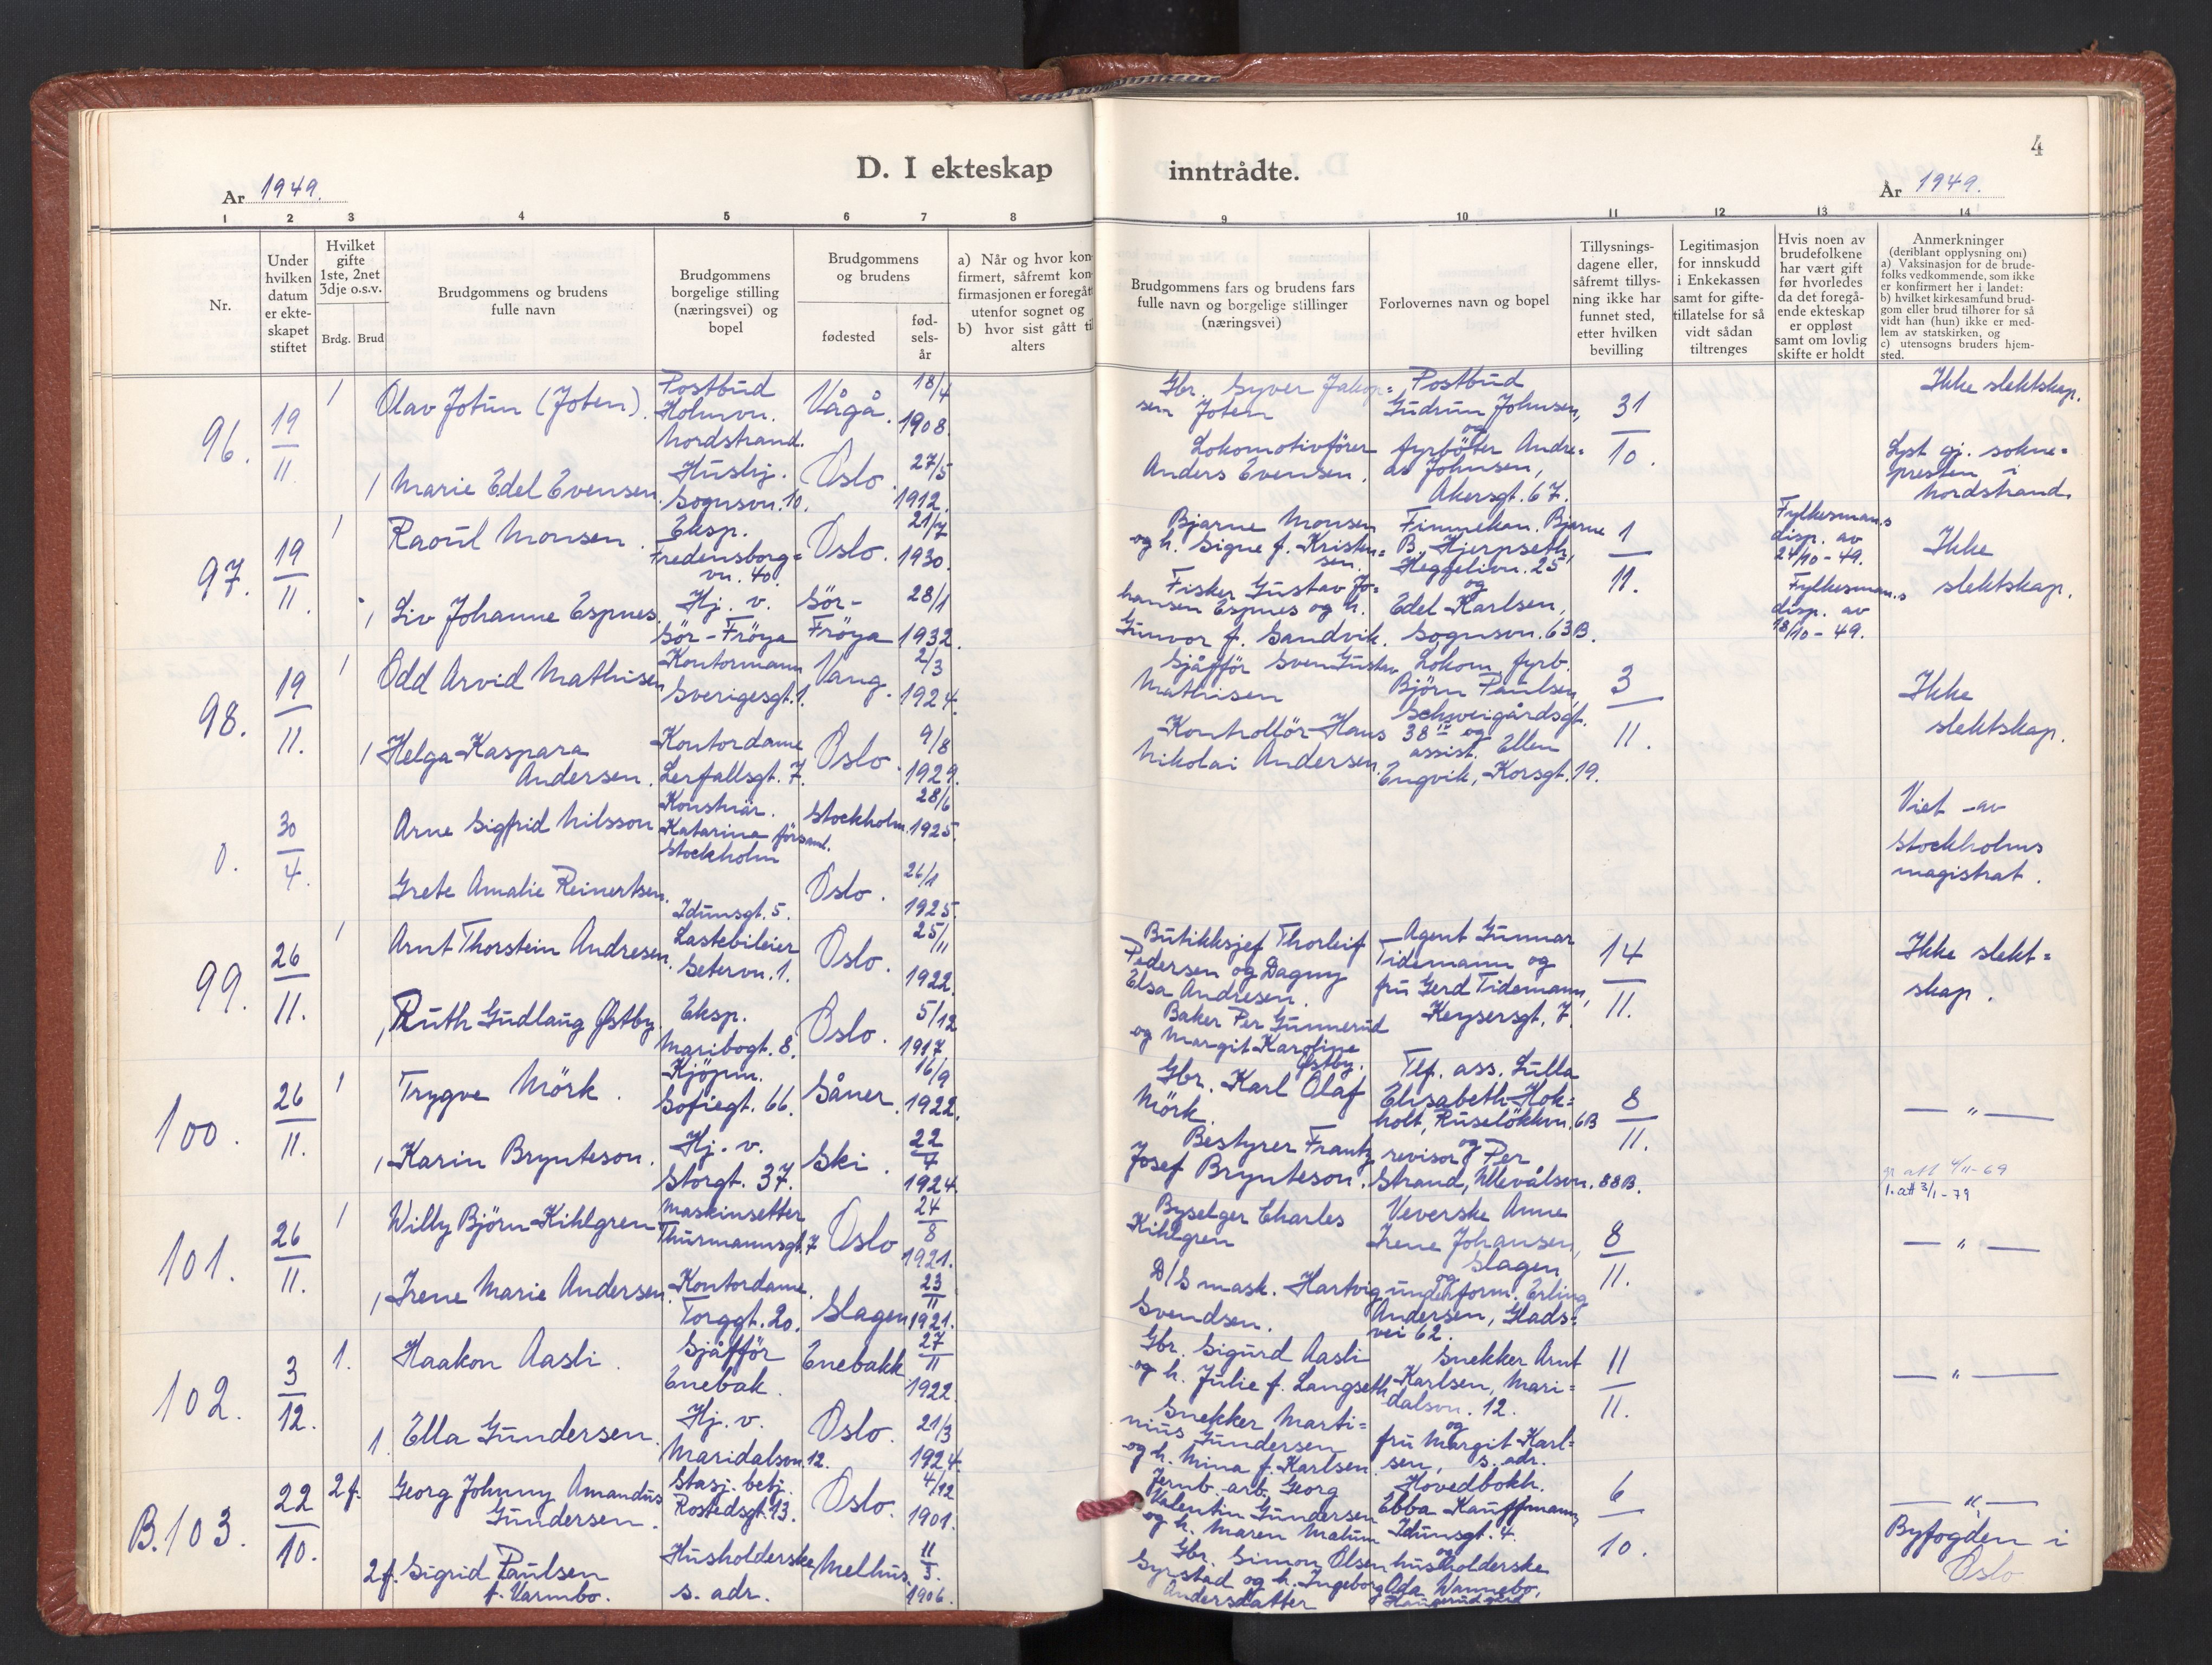 D. I ekteskap
År 1949.
1 2 3 4 5 6 7 8
Nr.
Under hvilken datum er ekteskapet stiftet
Hvilket gifte 1ste, 2net 3dje o.s.v.
Brdg. Brud
Brudgommens og brudens fulle navn
Brudgommens borgelige stilling (næringsvei) og bopel
Brudgommens og brudens
fødested
fød-
sels-
år
a) Når og hvor kon
firmert, såfremt kon
firmasjonen er foregått
utenfor sognet og
b) hvor sist gått til
alters
96. 19/11 1 Olav Jotun (Joten). Postbud Holmvn. Nordstrand. Vågå. 18/4 1908.
1 Marie Edel Evensen. Hushj. Sognsvn. 10. Oslo. 27/5 1912.
97. 19/11. 1 Raoul Monsen. Eksp. Fredensborg= vn. 40. Oslo. 21/7 1930.
1 Liv Johanne Espnes. Hj. v. Sör-Fröya Sör-Fröya 28/1 1932.
98. 19/11. 1 Odd Arvid Mathisen Kontormann Sverigesgt. 1. Vang. 2/3 1924.
1 Helga Kaspara Andersen. Kontordame Lerfallsgt. 7. Oslo. 9/8 1929.
0. 30/4. Arne Sigfrid Nilsson Konstnär. Katarina församl. Stockholm Stockholm. 28/6 1925.
Grete Amalie Reinertsen. Idunsgt. 5. Oslo. 26/1 1925.
99. 26/11. 1 Arnt Thorstein Andresen. Lastebileier Setervn. 1. Oslo. 25/11 1922.
1 Ruth Gudlaug Østby. Eksp. Maribogt. 8. Oslo. 5/12 1917
100. 26/11. 1 Trygve Mörk. Kjöpm. Sofiegt. 66. Såner. 16/9 1922.
1 Karin Brynteson. Hj. v. Storgt. 37. Ski. 22/7 1924.
101. 26/11. 1 Willy Björn Kihlgren Maskinsetter Thurmannsgt. 7 Oslo 24/8 1921.
1 Irene Marie Andersen. Kontordame Torggt. 20. Slagen 23/11 1921.
102. 3/12. 1. Haakon Aasli. Sjåfför Enebak. Enebakk 27/11 1922.
1 Ella Gundersen. Hj. v. Maridalsvn. 12. Oslo. 21/3 1924.
B. 103. 22/10. 2 f. Georg Johnny Amandus Gundersen. Stasj. betj. Rostedsgt. 13. Oslo. 4/12 1901.
2 f. Sigrid Paulsen f. Varmbo. Husholderske s. adr. Melhus. 11/3. 1906.
4
inntrådte.
År 1949.
9 10 11 12 13 14
Brudgommens fars og brudens fars fulle navn og borgelige stillinger (næringsvei)
Forlovernes navn og bopel
Tillysnings-
dagene eller,
såfremt tillys-
ning ikke har
funnet sted,
etter hvilken
bevilling
Legitimasjon
for innskudd
i Enkekassen
samt for gifte-
tillatelse for så
vidt sådan
tiltrenges
Hvis noen av
brudefolkene
har vært gift
før hvorledes
da det foregå-
ende ekteskap
er oppløst
samt om lovlig
skifte er holdt
Anmerkninger
(deriblant opplysning om)
a) Vaksinasjon for de brude-
folks vedkommende, som ikke
er konfirmert her i landet:
b) hvilket kirkesamfund brud-
gom eller brud tilhører for så
vidt han (hun) ikke er med-
lem av statskirken, og
c) utensogns bruders hjem-
sted.
Gbr. Syver Jakop= sen Joten Postbud Gudrun Johnsen, og 31/10. Ikke slektskap.
Lokomotivfører Anders Evensen. fyrböter Andre= as Johnsen, Akersgt. 67. Lyst gj. sokne= presten i Nordstrand.
Bjarne Monsen og h. Signe f. Kristen= sen. Finmekan. Bjarne B. Hjerpseth, Heggelivn. 25 og 1/11. Fylkesman.s disp. av 24/10-49. Ikke slektskap.
Fisker Gustav Jo= hansen Espnes og h. Gunvor f. Sandvik. Edel Karlsen, Sognsvn. 63B. Fylkesman.s disp. av 18/10-49.
Sjåfför Sven Gustav Mathisen Lokom. fyrb. Björn Paulsen, Schweigårdsgt. 38 IV og 3/11. Ikke slektskap.
Kontrollör Hans Nikolai Andersen. assist. Ellen Engvik, Korsgt. 19.
Viet av Stockholms magistrat.
Butikksjef Thorleif Pedersen og Dagny Elsa Andresen. Agent Gunnar Tidemann og fru Gerd Tidemann, Keysersgt. 7. 14/11. Ikke slekt= skap.
Baker Per Gunnerud og Margit Karoline Østby.
Gbr. Karl Olaf Mörk. Tlf. ass. Lulla Elisabeth Hok= holt, Ruselökkvn. 6B og 8/11. — " —
Bestyrer Frantz Josef Brynteson. revisor Per Strand, Ullevålsvn. 88B.
att 4/11-69
1. att 3/1-79
Byselger Charles Kihlgren Veverske Anne Irene Johansen, Slagen og 8/11. — " —
D/S mask. Hartvig Svendsen. underform. Erling Andersen, Glads= vei 62.
Gbr. Sigurd Aasli og h. Julie f. Langseth Snekker Arnt Karlsen, Mari= dalsvn. 12. og 11/11. — " —
Snekker Marti= nius Gundersen og h. Mina f. Karlsen. fru Margit Karl= sen, s. adr.
Jernb. arb. Georg Valentin Gundersen og h. Maren Malum Hovedbokh. Ebba Kauffmann, Idunsgt. 4. og 6/10. — " —
Gbr. Simon Olsen Gynstad og h. Ingeborg Andersdatter husholderske Ada Wannebo, Byfogden i Oslo